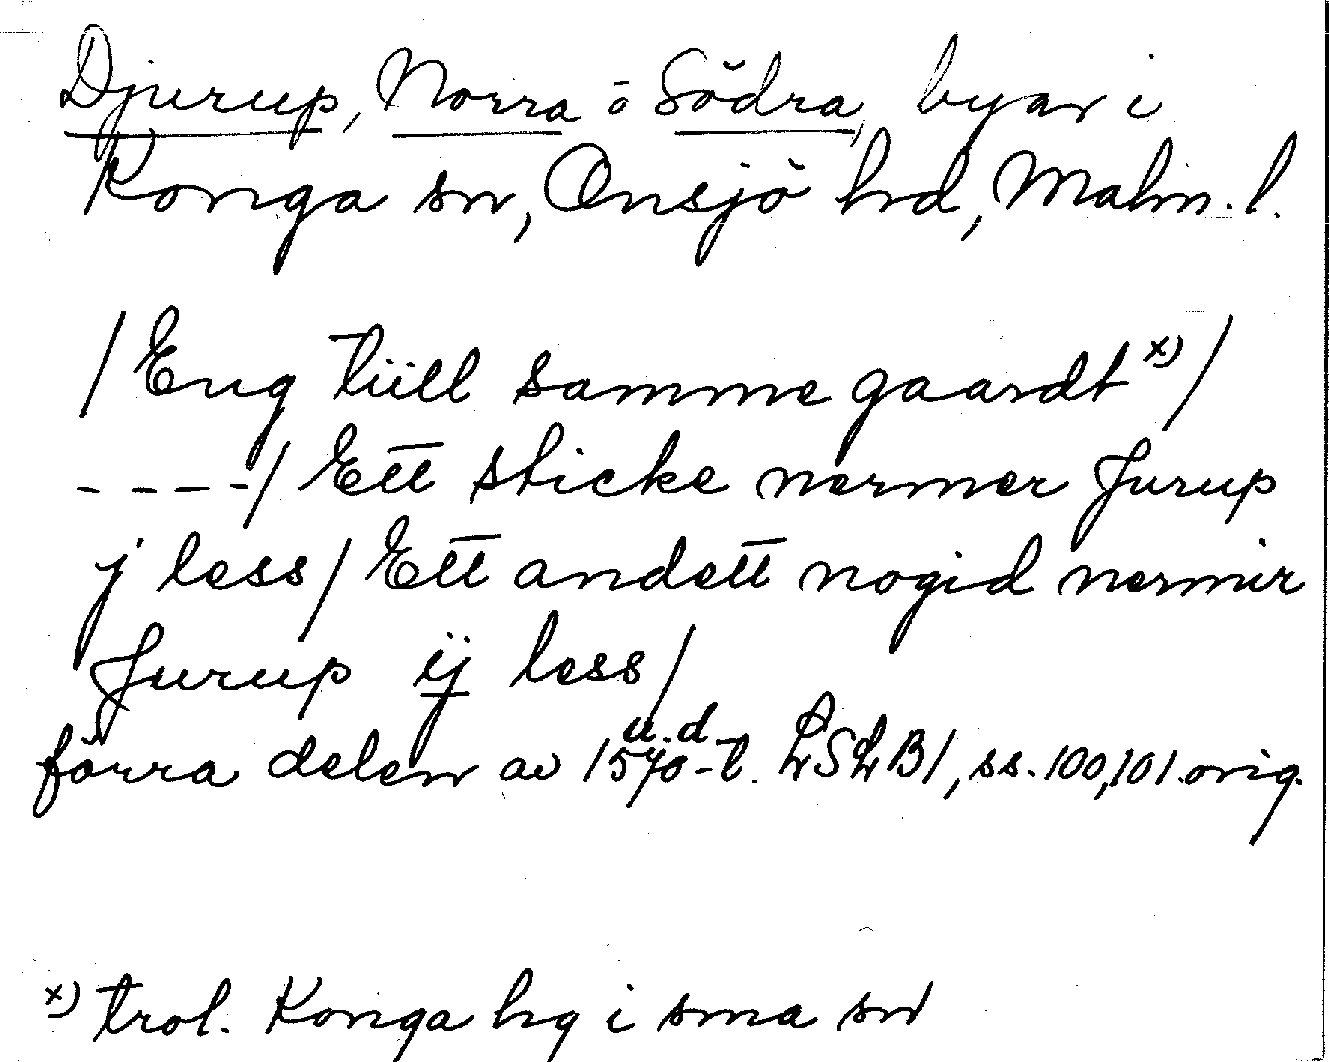 Djurup, Norra o Södra, byar i
Konga sn, Onsjö hrd, Malm. l.
/ Eng tiill samme gaardt x) /
----/ Ett sticke nermer Jurup
j less / Ett andett nogid nermir
Jurup ij less /
förra delen av 1570-t. u.d. LSLB1, ss. 100, 101. orig.
x) trol. Konga hg i sma sn